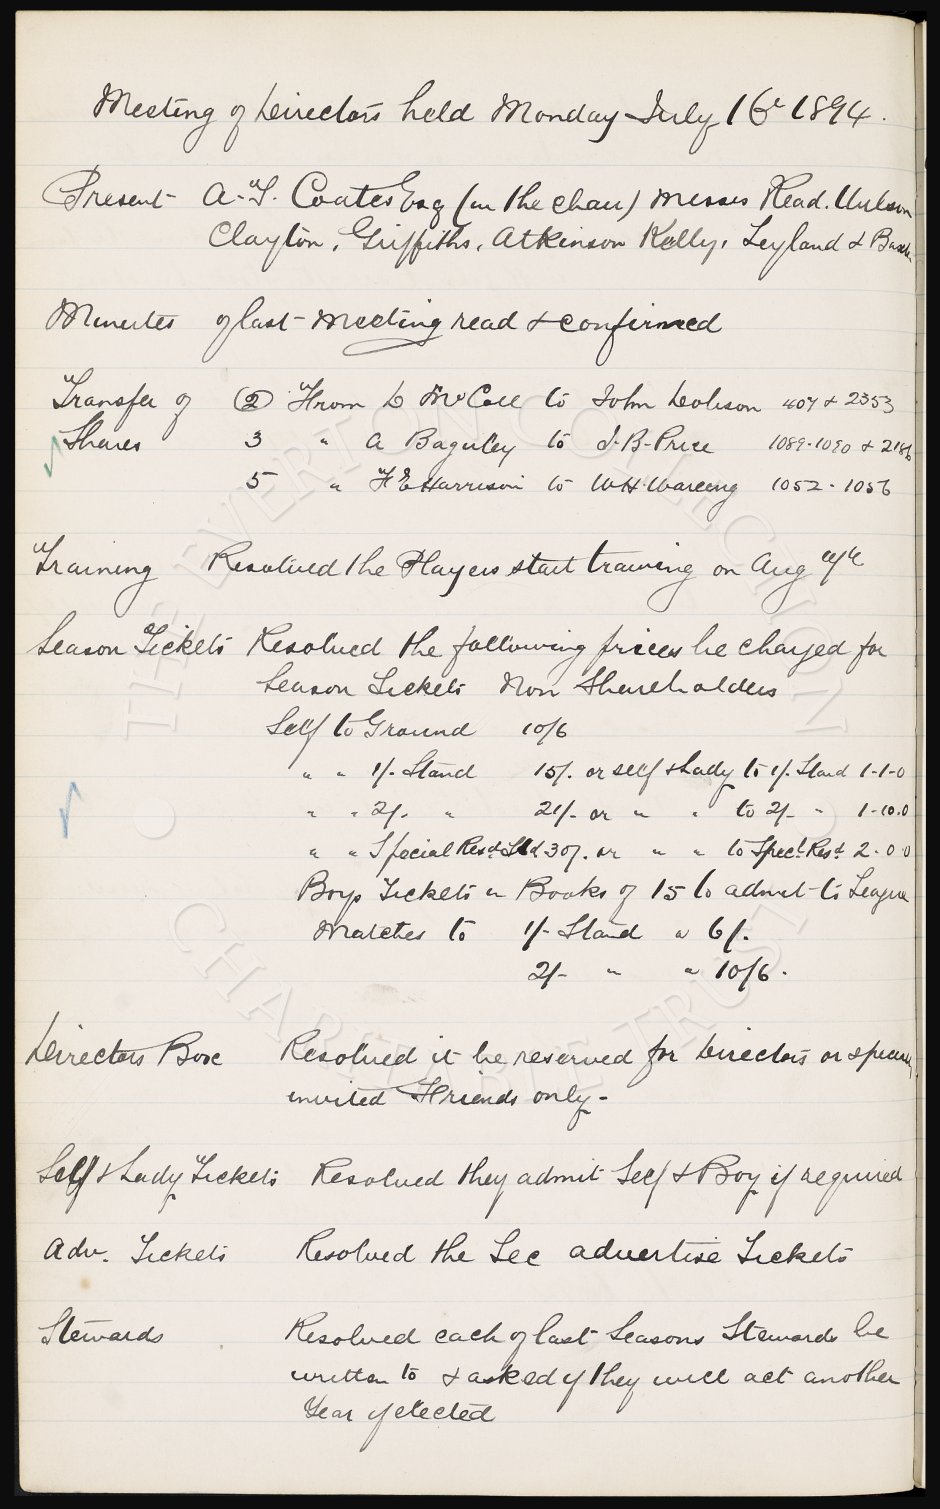 Meeting of Directors held Monday July 16th 1894.
Present A. T. Coates Esq (in the chair) Messrs Read. Wilson
Clayton, Griffiths, Atkinson Kelly, Leyland & Baxter
Minutes of last Meeting read & confirmed
Transfer of (2) From D McColl to John Dobson 407 & 2353
Shares 3 " A Baguley to J. B. Price 1089-1090 & 2186
5 " F E Harrison to W H Wareing 1052-1056
Training Resolved the Players start training on Aug
Season Tickets Resolved the following prices be charged for
Season Tickets Non Shareholders
Self to Ground 10/6
" " 1/- Stand 15/. or self & Lady to 1/. Stand 1-1-0
" " 2/. " 21/- or " " to 2/- " 1-10.0
" " Special Resd Std 30/. or " " to Specl Resd 2-0-0
Boys Tickets in Books of 15 to admit to League
Matches to 1/- Stand a 6/.
2/- " a 10/6.
Directors Box Resolved it be reserved for Directors or specially
invited Friends only-
Self & Lady Tickets Resolved they admit Self & Boy if required
Adv. Tickets Resolved the Sec advertise Tickets
Stewards Resolved each of last Seasons Stewards be
written to & asked if they will act another
Year if elected
• THE EVERTON COLLECTION •
CHARITABLE TRUST